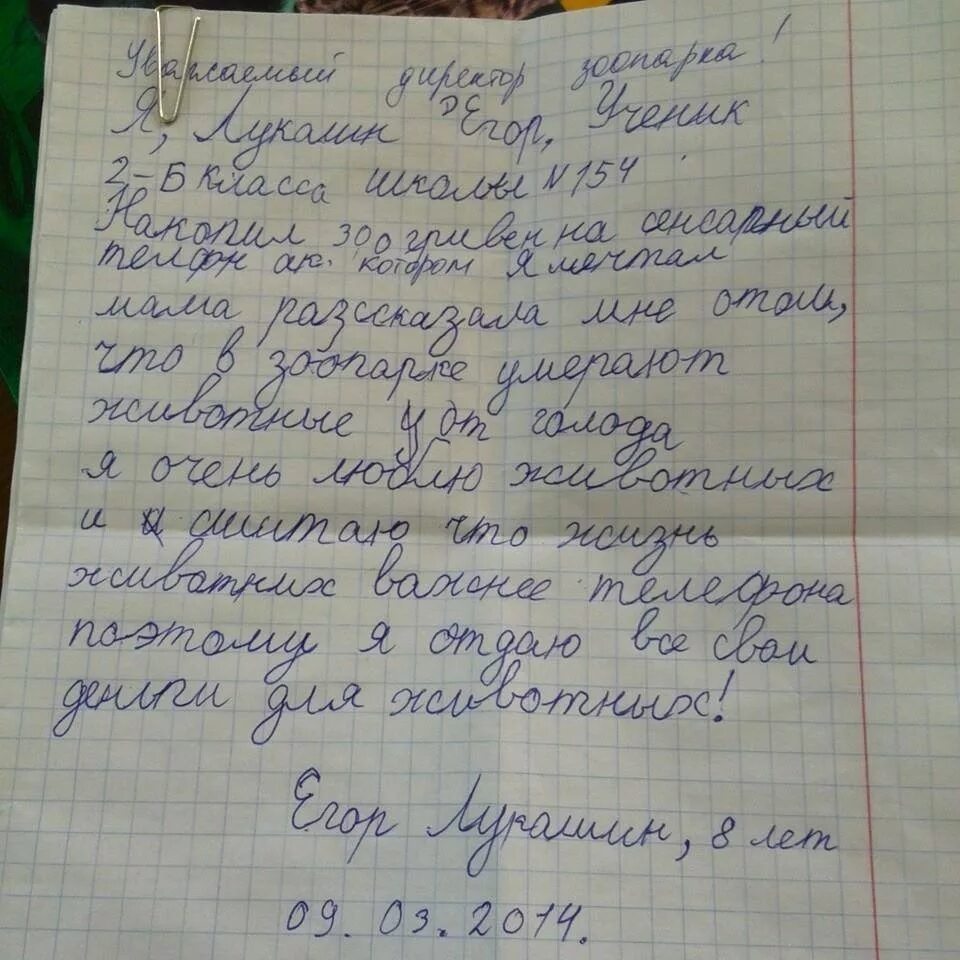 Уважаемый директор зоопарка!
Я, Лукашин Егор, Ученик
2-Б класса школы №154
Накопил 300 гривен на сенсарный
телфон ак. котором я мечтал
мама разссказала мне отом,
что в зоопарке умерают
животные от голода
я очень люблю животных
и считаю что жизнь
животних важнее телефона
поэтому я отдаю все свои
деньги для животных!
Егор Лукашин, 8 лет
09.03.2014.